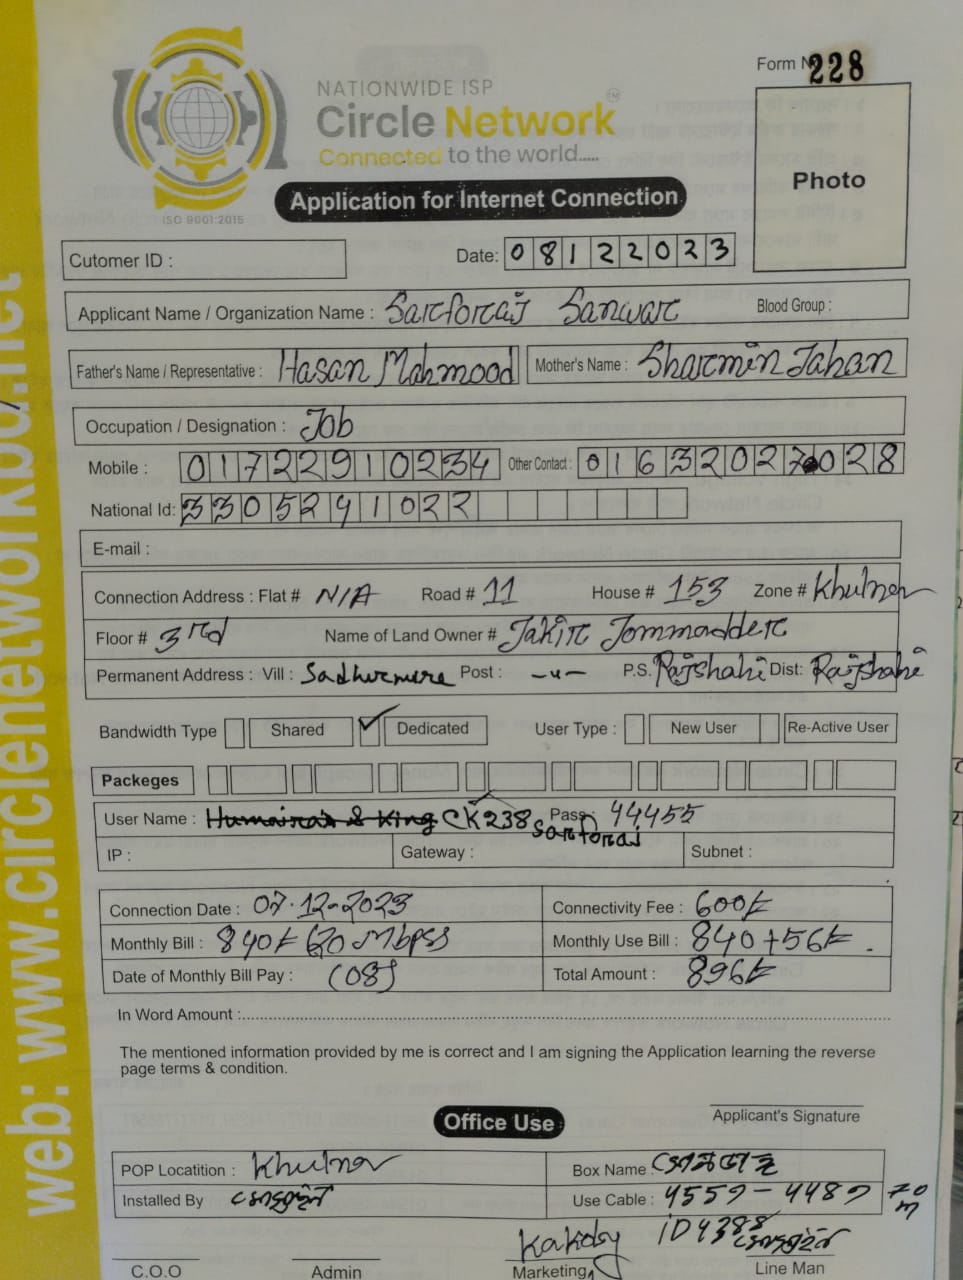 Form No 228
NATIONWIDE ISP
Circle Network TM
Connected to the world.....
ISO 9001:2015
Photo
Application for Internet Connection
Cutomer ID :
Date: 08122023
Applicant Name / Organization Name : Sarforaj Sanwar Blood Group :
Father's Name / Representative : Hasan Mahmood Mother's Name : Sharmin Jahan
Occupation / Designation : Job
Mobile : 01722910234 Other Contact : 01632027028
National Id: 3305291022
E-mail :
Connection Address : Flat # N/A Road # 11 House # 153 Zone # Khulna
Floor # 3rd Name of Land Owner # Jakir Jommadder
Permanent Address : Vill : Post : -〃- P.S. Rajshahi Dist: Rajshahi
Bandwidth Type Shared ✓ Dedicated User Type : New User Re-Active User
Packeges
User Name : Humaira's & King CK238 Pass : 44455
Sarforaj
IP : Gateway : Subnet :
Connection Date : 07.12-2023 Connectivity Fee : 600/=
Monthly Bill : 840/= (20 Mbps) Monthly Use Bill : 840+56/=
Date of Monthly Bill Pay : (08) Total Amount : 896/=
In Word Amount :
The mentioned information provided by me is correct and I am signing the Application learning the reverse
page terms & condition.
Applicant's Signature
Office Use
POP Locatition : Khulna Box Name :
Installed By Use Cable : 4559 - 4489 70 m
Kakoly iD 4388
C.O.O Admin Marketing Line Man
web: www.circlenetworkbd.net